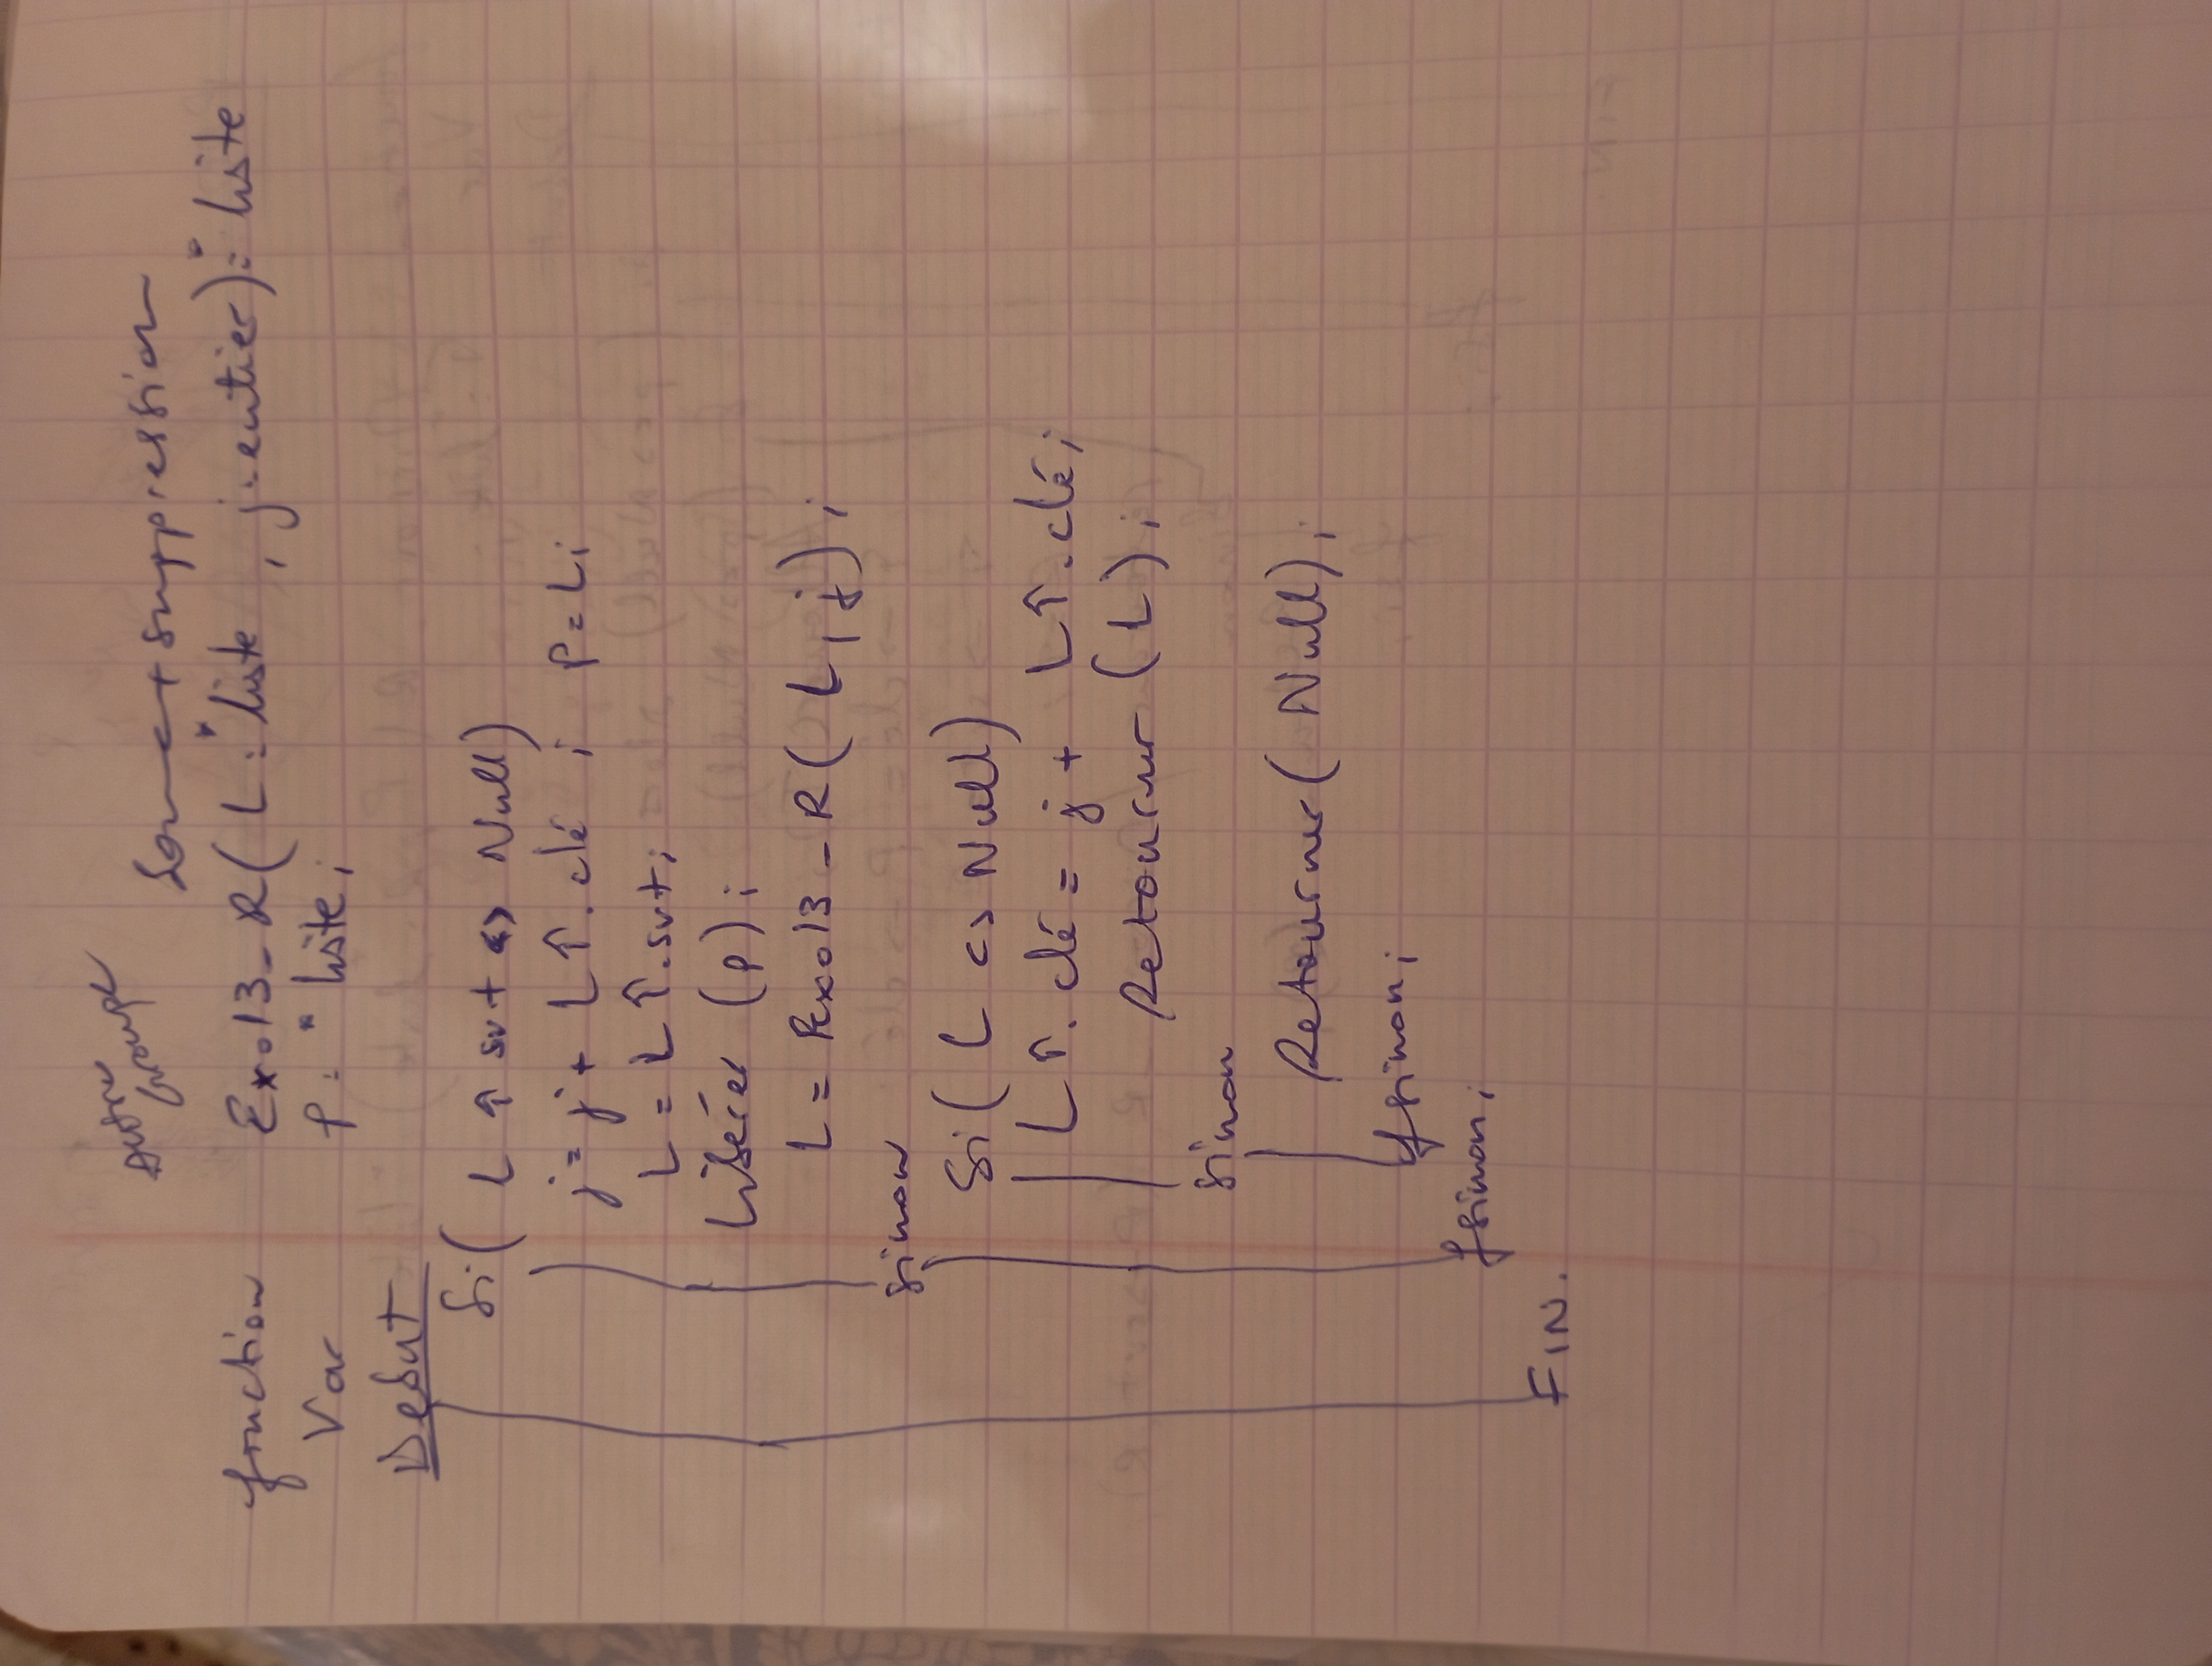 autre groupe Som et suppression
fonction Exo13-R(L: *liste, j:entier): *liste
Var P: *liste;
Debut
Si( L ↑ svt <> Null)
j = j + L↑.clé ; P = L;
L = L↑.svt;
Libérer (P);
L = Rxo13-R(L, j);
sinon
Si( L <> Null)
L↑.clé = j + L↑.clé;
Retourner (L);
sinon
Retourner( Null);
fsinon;
fsinon;
FIN.